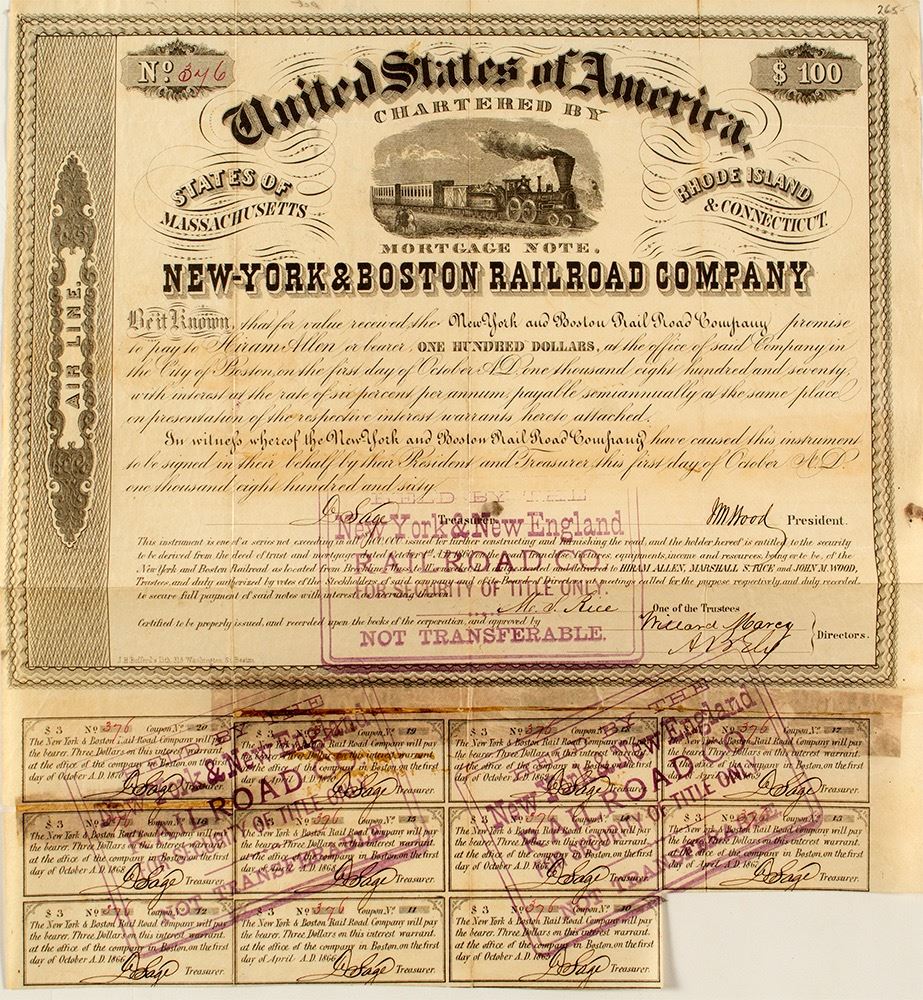 265-
Nº 376
$ 100
United States of America.
CHARTERED BY
STATES OF
MASSACHUSETTS
RHODE ISLAND
& CONNECTICUT.
MORTGAGE NOTE.
NEW-YORK & BOSTON RAILROAD COMPANY
AIR LINE.
Be it Known, that for value received the New York and Boston Rail Road Company promise
to pay to Hiram Allen or bearer, ONE HUNDRED DOLLARS, at the office of said Company in
the City of Boston, on the first day of October A.D. one thousand eight hundred and seventy,
with interest at the rate of six percent per annum, payable semiannually at the same place
on presentation of the respective interest warrants hereto attached.
In witness whereof the New York and Boston Rail Road Company have caused this instrument
to be signed in their behalf by their President and Treasurer this first day of October A.D.
one thousand eight hundred and sixty
D Sage Treasurer
JM Wood President.
HELD BY THE
New York & New England
RAILROAD CO.
FOR SECURITY OF TITLE ONLY.
NOT TRANSFERABLE.
This instrument is one of a series not exceeding in all issued for further constructing and furnishing the road, and the holder hereof is entitled to the security
to be derived from the deed of trust and mortgage dated October 1st, of the road, franchise, fixtures, equipments, income and resources, being or to be, of the
New York and Boston Railroad as located from and delivered to HIRAM ALLEN, MARSHALL S. RICE and JOHN M. WOOD,
Trustees, and duly authorized by votes of the Stockholders of said company and of its Board of Directors at meetings called for the purpose respectively, and duly recorded
to secure full payment of said notes with interest, as
M. S. Rice One of the Trustees
Certified to be properly issued, and recorded upon the books of the corporation, and approved by
Willard Marcy
Directors.
J.H. Bufford's Lith. 313 Washington St. Boston
$ 3 Nº 376 Coupon Nº 20
The New York & Boston Rail Road Company will pay
the bearer Three Dollars on this interest warrant
at the office of the company in Boston, on the first
day of October A.D. 1870
D Sage Treasurer.
$ 3 Nº 376 Coupon Nº 19
The New York & Boston Rail Road Company will pay
the bearer Three Dollars on this interest warrant
at the office of the company in Boston, on the first
day of April A.D. 1870
D Sage Treasurer.
$ 3 Nº 376 Coupon Nº 18
The New York & Boston Rail Road Company will pay
the bearer Three Dollars on this interest warrant
at the office of the company in Boston, on the first
day of October A.D. 1869
D Sage Treasurer.
$ 3 Nº 376 Coupon Nº 17
The New York & Boston Rail Road Company will pay
the bearer Three Dollars on this interest warrant
at the office of the company in Boston, on the first
day of April A.D. 1869
D Sage Treasurer.
$ 3 Nº 376 Coupon Nº 16
The New York & Boston Rail Road Company will pay
the bearer Three Dollars on this interest warrant.
at the office of the company in Boston, on the first
day of October A.D. 1868
D Sage Treasurer.
$ 3 Nº 376 Coupon Nº 15
The New York & Boston Rail Road Company will pay
the bearer Three Dollars on this interest warrant.
at the office of the company in Boston, on the first
day of April A.D. 1868
D Sage Treasurer.
$ 3 Nº 376 Coupon Nº 14
The New York & Boston Rail Road Company will pay
the bearer Three Dollars on this interest warrant.
at the office of the company in Boston, on the first
day of October A.D. 1867
D Sage Treasurer.
$ 3 Nº 376 Coupon Nº 13
The New York & Boston Rail Road Company will pay
the bearer Three Dollars on this interest warrant.
at the office of the company in Boston, on the first
day of April A.D. 1867
D Sage Treasurer.
$ 3 Nº 376 Coupon Nº 12
The New York & Boston Rail Road Company will pay
the bearer. Three Dollars on this interest warrant.
at the office of the company in Boston, on the first
day of October A.D. 1866
D Sage Treasurer.
$ 3 Nº 376 Coupon Nº 11
The New York & Boston Rail Road Company will pay
the bearer. Three Dollars on this interest warrant.
at the office of the company in Boston, on the first
day of April A.D. 1866
D Sage Treasurer.
$ 3 Nº 376 Coupon Nº 10
The New York & Boston Rail Road Company will pay
the bearer. Three Dollars on this interest warrant.
at the office of the company in Boston, on the first
day of October A.D. 1865
D Sage Treasurer.
HELD BY THE
New York & New England
RAILROAD CO.
FOR SECURITY OF TITLE ONLY.
NOT TRANSFERABLE.
HELD BY THE
New York & New England
RAILROAD CO.
FOR SECURITY OF TITLE ONLY.
NOT TRANSFERABLE.